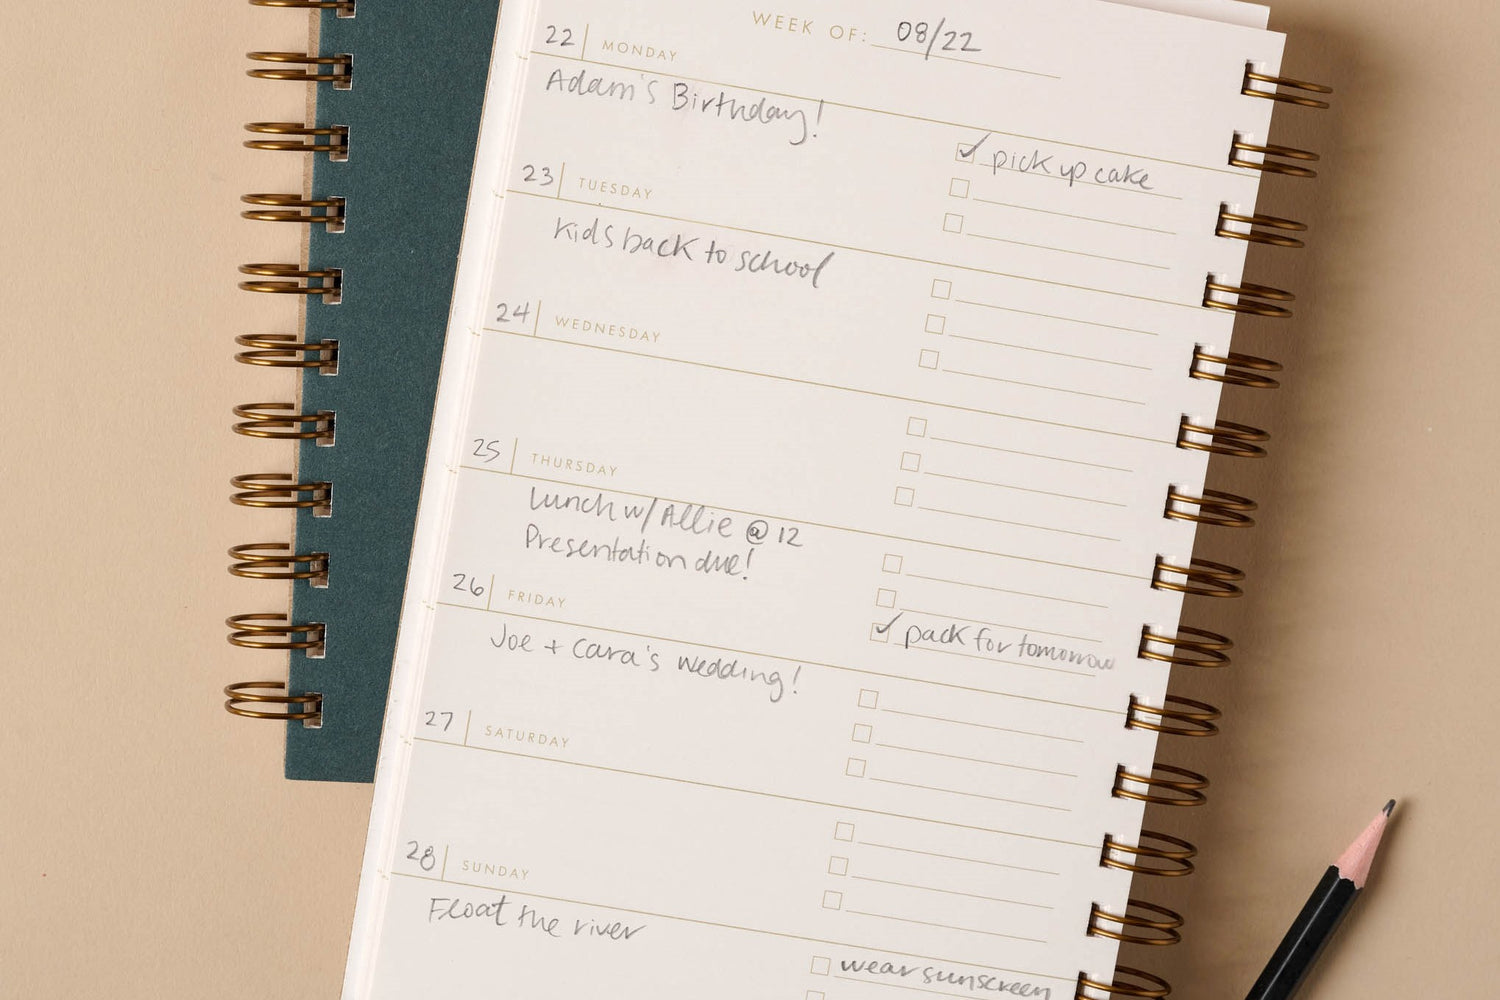 WEEK OF: 08/22
22 MONDAY
Adam's Birthday!
pick up cake
23 TUESDAY
Kids back to school
24 WEDNESDAY
25 THURSDAY
Lunch w/ Allie @ 12
Presentation due!
pack for tomorrow
26 FRIDAY
Joe + Cara's wedding!
27 SATURDAY
28 SUNDAY
Float the river
wear sunscreen